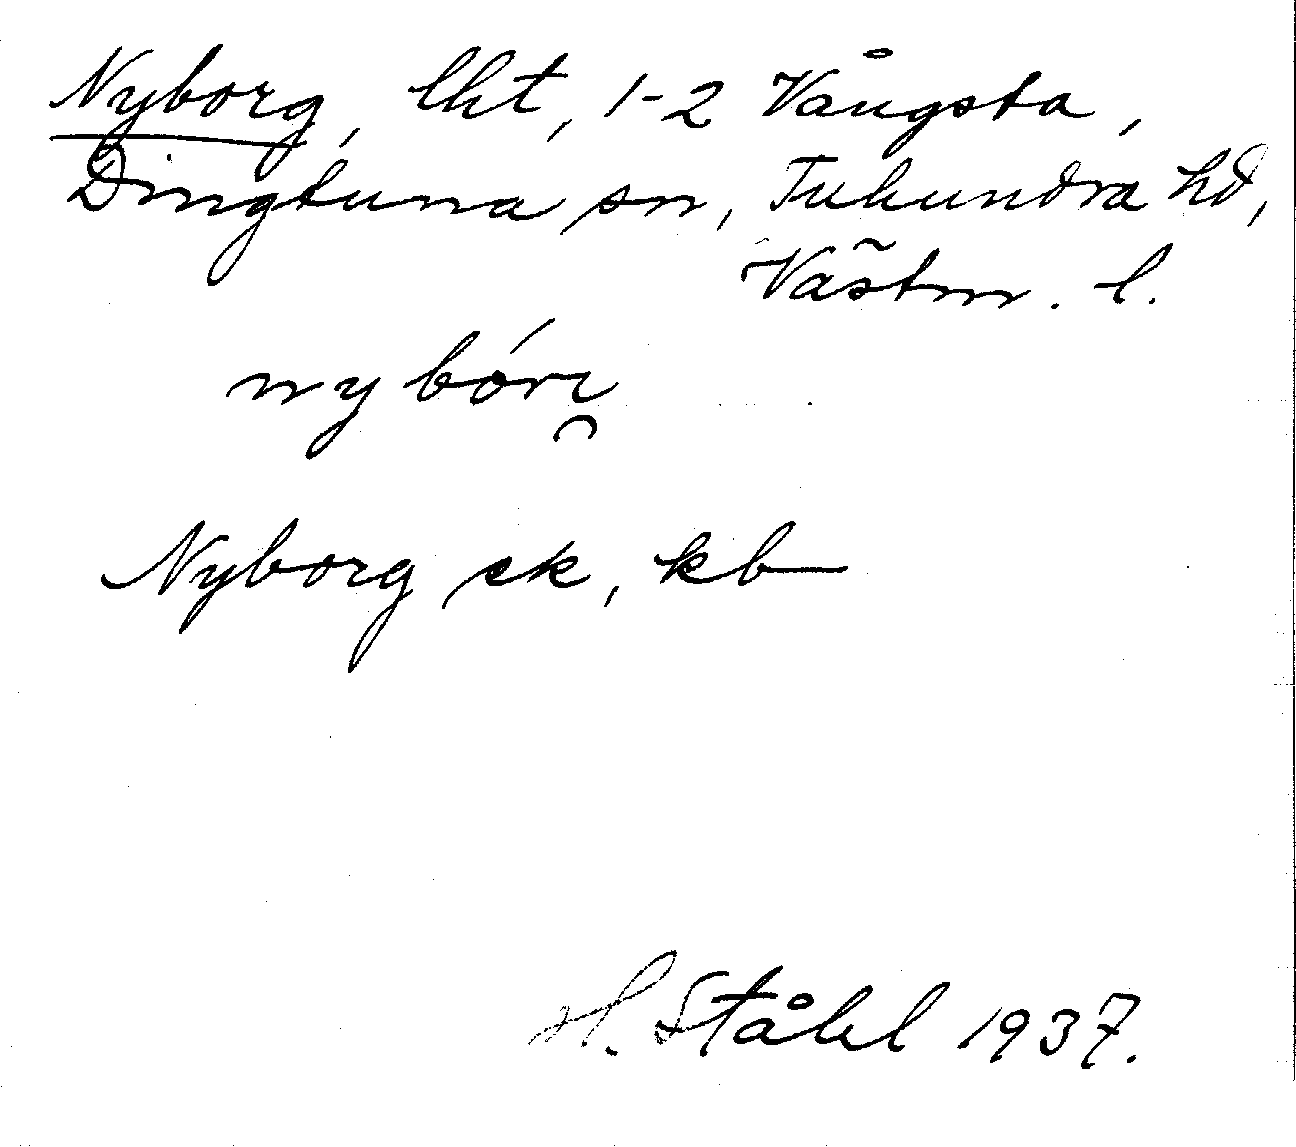 Nyborg, lht, 1-2 Vångsta,
Dingtuna sn, Tuhundra hd,
Västm. l.
nybóri̯
Nyborg ek, kb
H. Ståhl 1937.